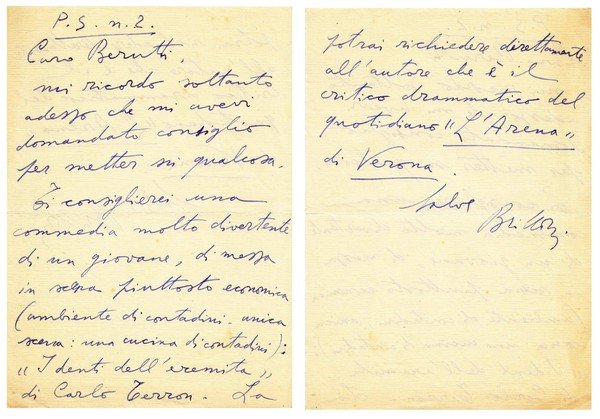 P.S. n. 2.
Caro Berutti,
mi ricordo soltanto
adesso che mi avevi
domandato consiglio
per metter su qualcosa.
Ti consiglierei una
commedia molto divertente
di un giovane, di messa
in scena piuttosto economica
(ambiente di contadini - unica
scena: una cucina di contadini):
"I denti dell'eremita"
di Carlo Terron. La
potrai richiedere direttamente
all'autore che è il
critico drammatico del
quotidiano "L'Arena"
di Verona.
Salve